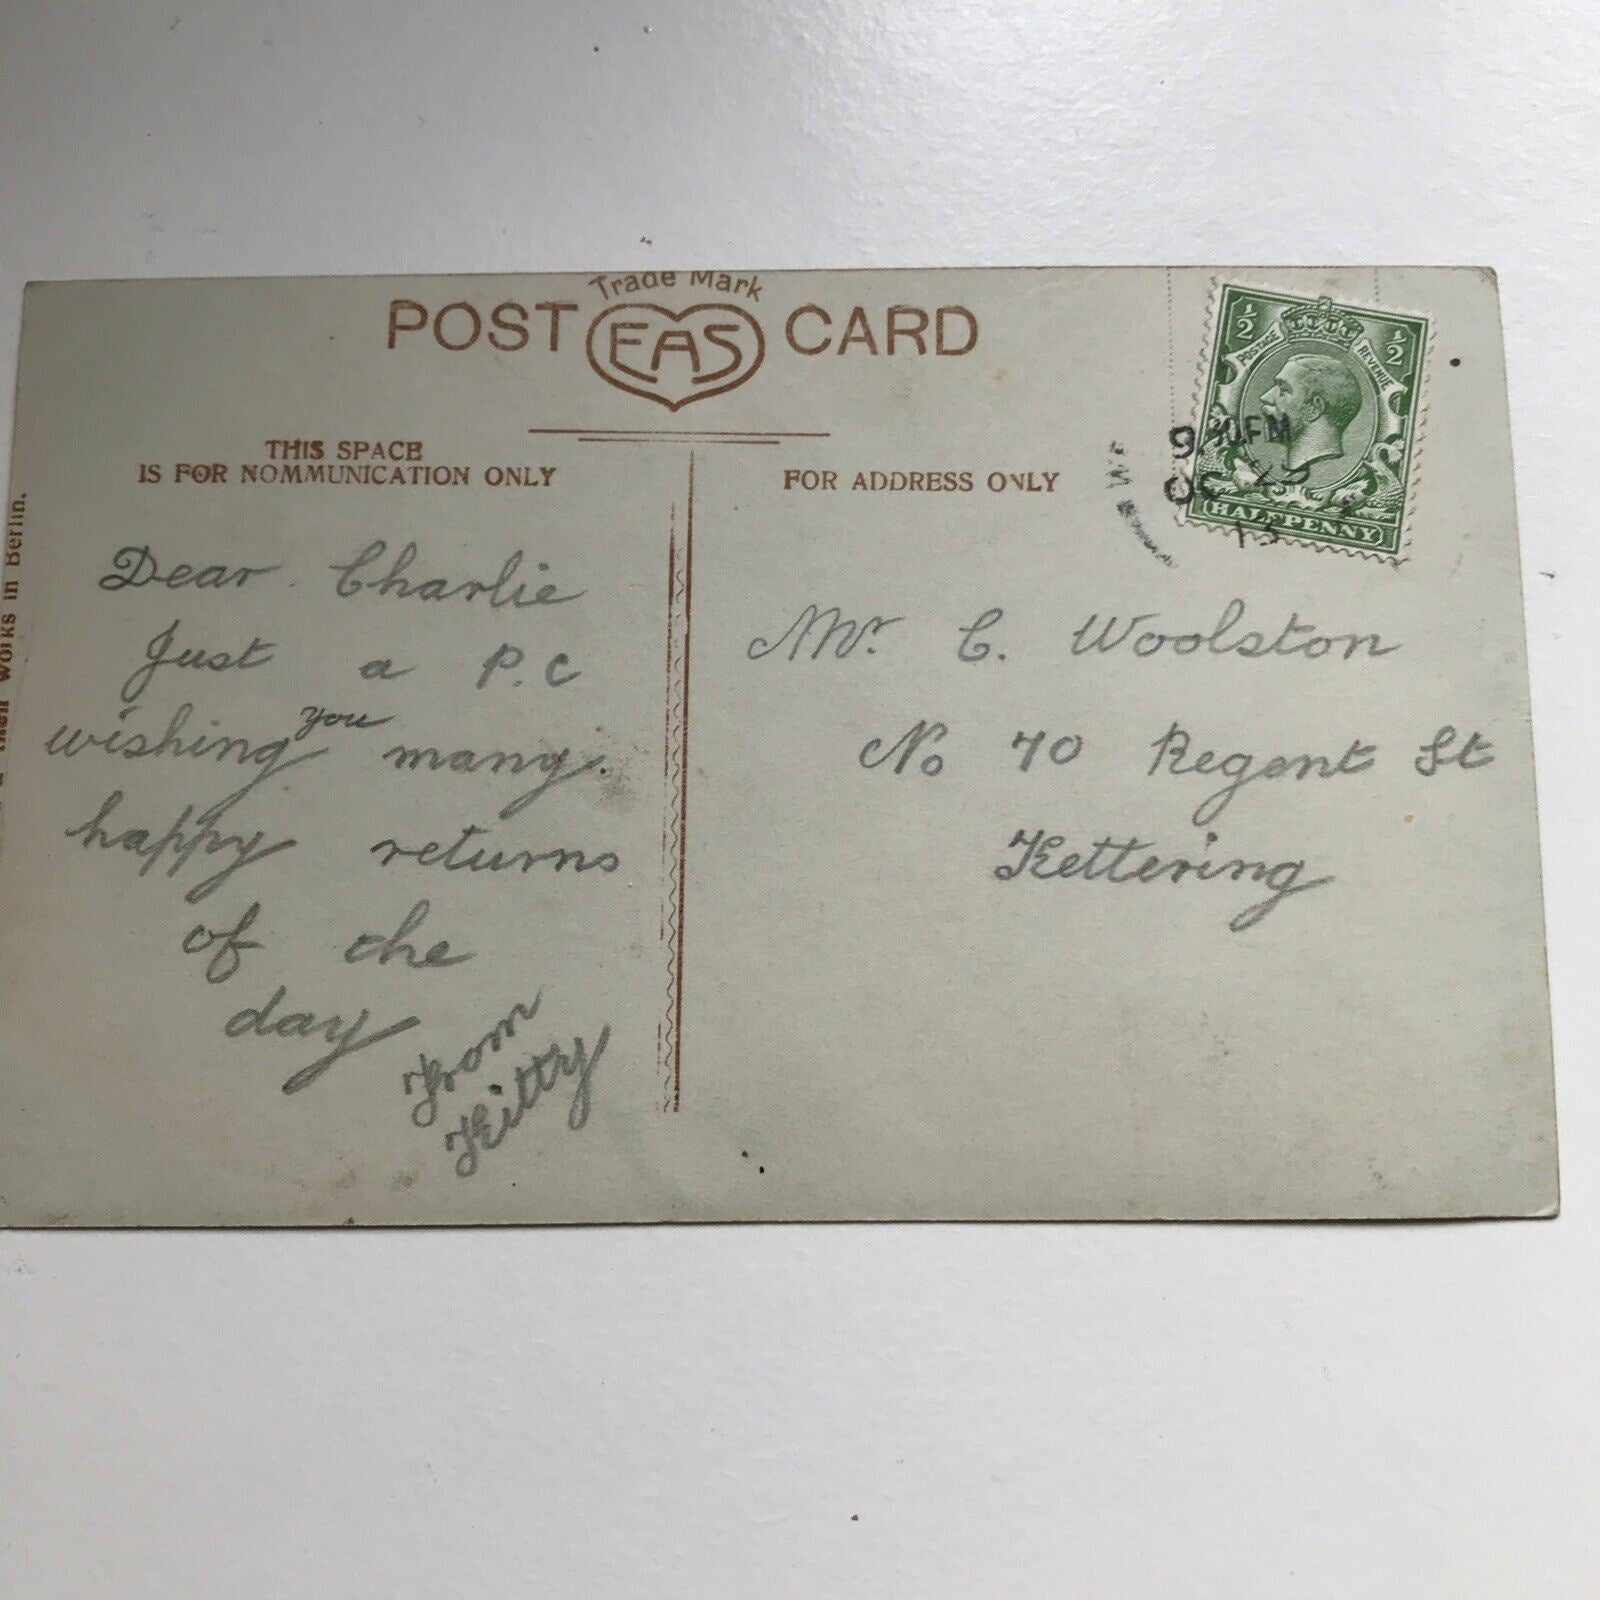 Trade Mark
POST EAS CARD
THIS SPACE
IS FOR NOMMUNICATION ONLY
FOR ADDRESS ONLY
works in Berlin.
½ ½
POSTAGE REVENUE
HALFPENNY
9 30.PM
OC 25
13
Dear Charlie
Just a P.C
wishing you many.
happy returns
of the
day
From
Kitty
Mr. C. Woolston
No 70 Regent St
Kettering